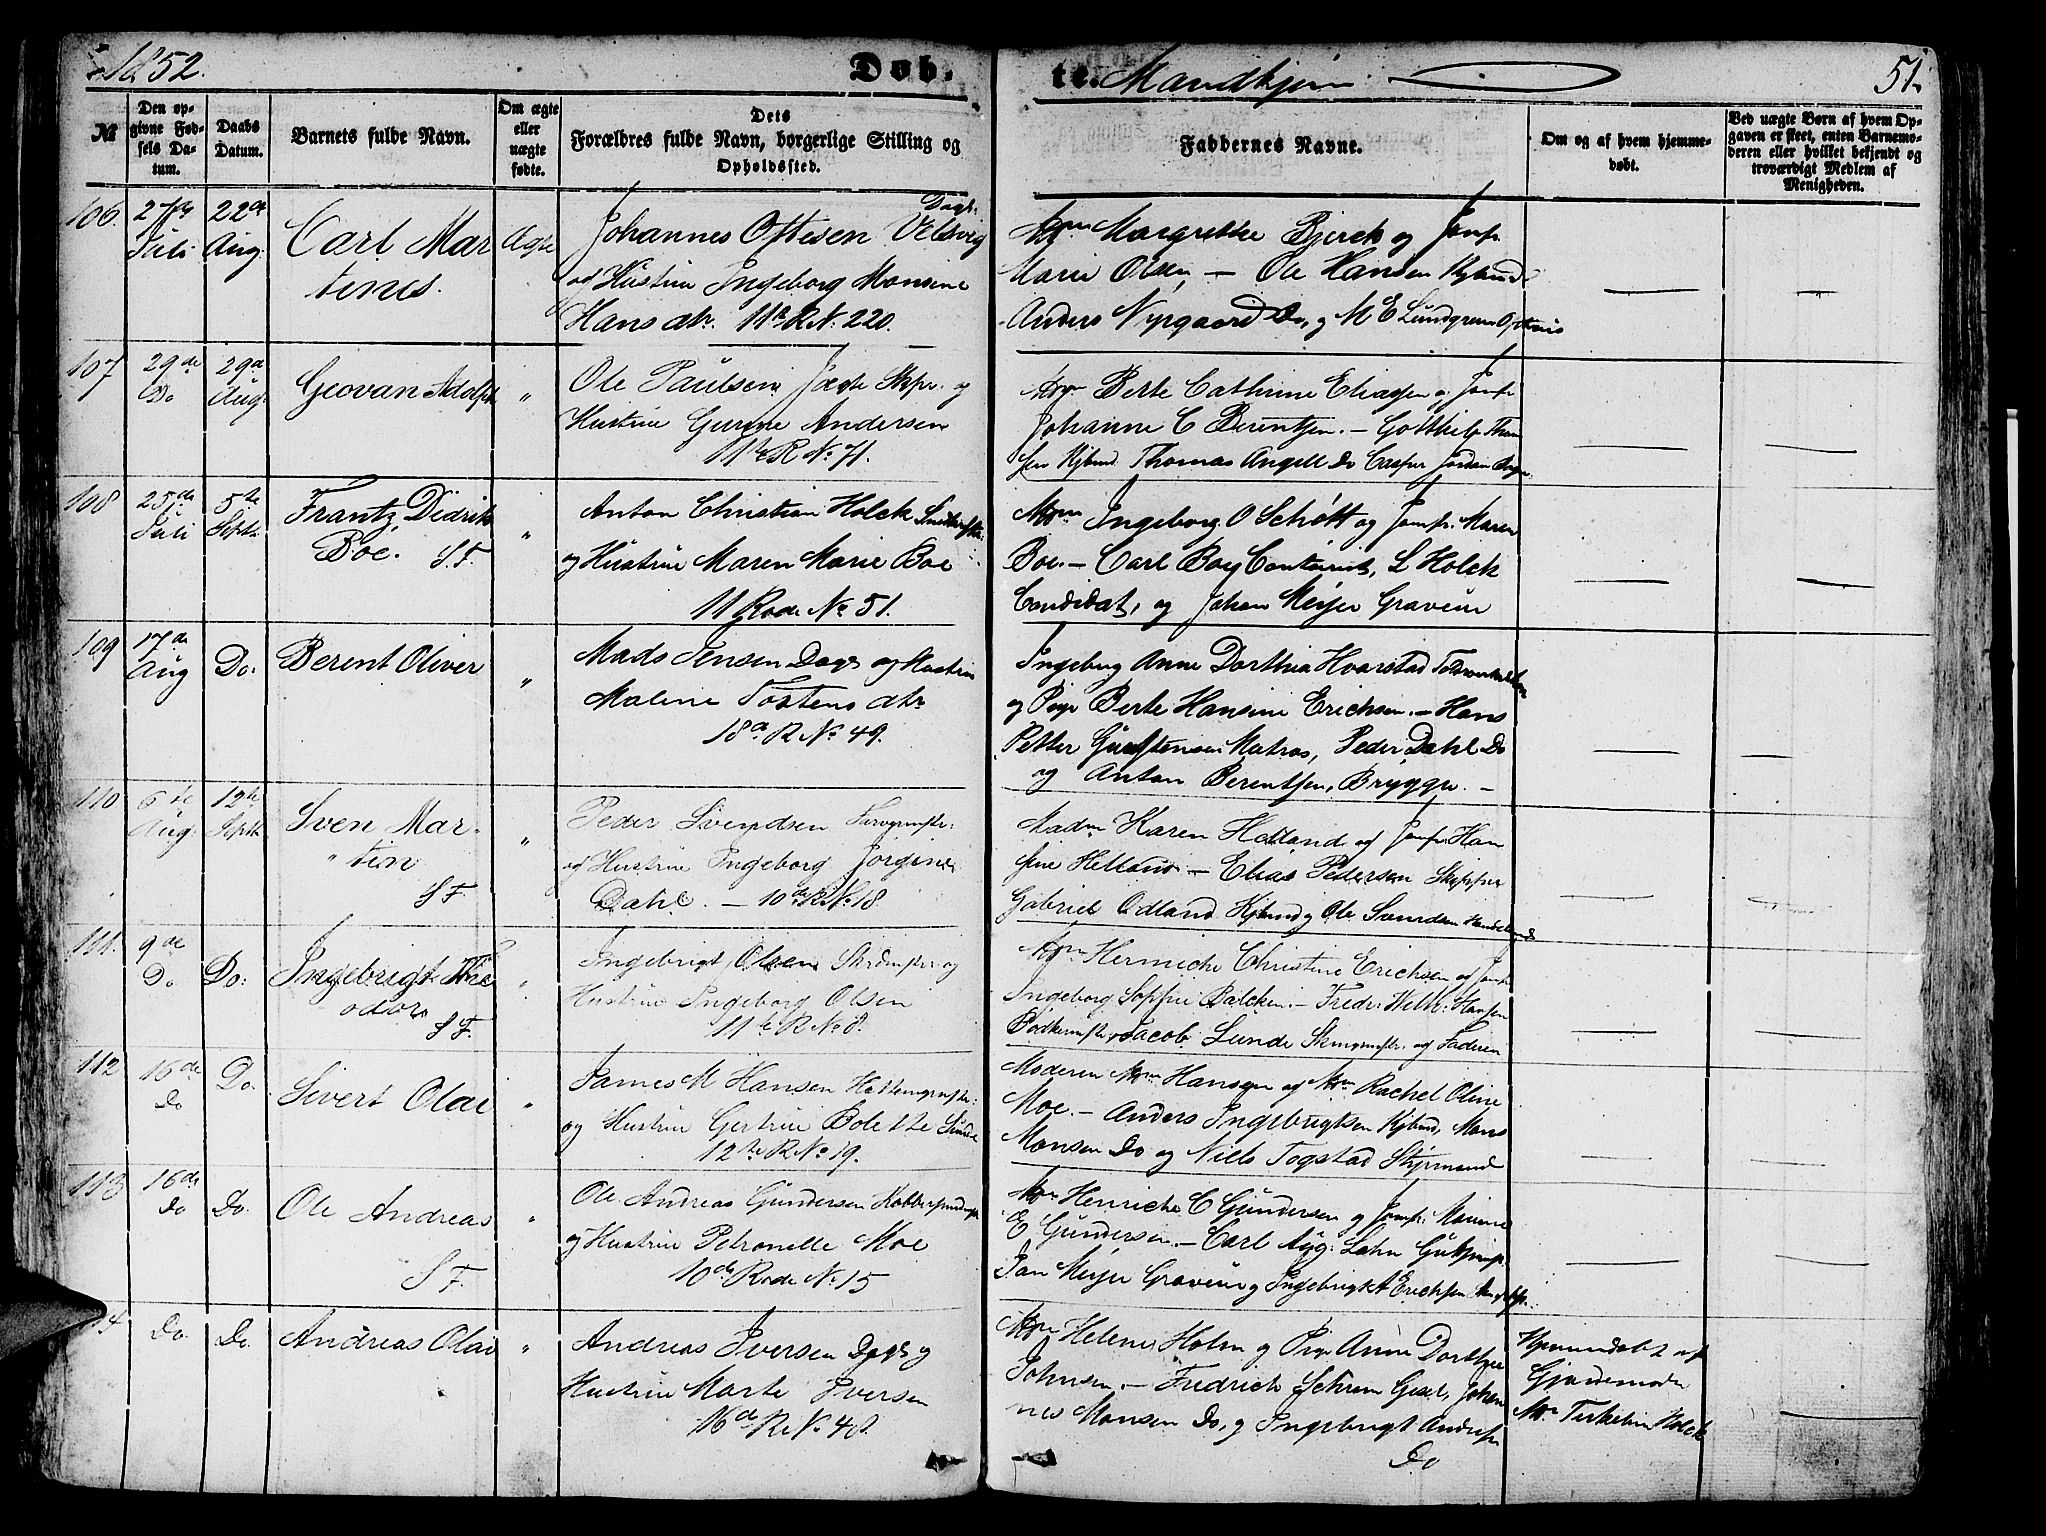 1852.
Døb-
te. Mandkjøn
51.
№
Den op-
givne Fød-
sels Da-
tum.
Daabs
Datum.
Barnets fulde Navn.
Om ægte
eller
uægte
fødte.
Dets
Forældres fulde Navn, borgerlige Stilling og
Opholdssted.
Faddernes Navne.
Om og af hvem hjemme-
døbt.
Ved uægte Børn af hvem Op-
gaven er skeet, enten Barnemo-
deren eller hvilket bekjendt og
troværdigt Medlem af
Menigheden.
106.
Juli
22de
Aug.
Carl Mar
tinus.
Ægte
Johannes Ottesen Velsvig
Dagk:
og Hustrue Ingeborg Monsine
Hansdtr. 11te R No. 220.
Mdm Margrethe Bjerck og Jomfr
Marie Olsen, — Ole Hansen Kjbmd
Anders Nypgaard Do, og M E Lundgreen
107
29de
Do
29de
Aug.
Geovan Adolph
"
Ole Paulsen Jægte Skipr. og
Hustrue Gurine Andersen
11te R No 71.
Mdm Berte Cathrine Eliassen og Jomfr
Johanne C Berentsen. — Gotthilf Tham
sen Kjbmd. Thomas Angell Do Casper Jordan
108
25de
Juli
5te
Septbr
Frantz Didrik
Boe. S F.
"
Anton Christian Holck
og Hustrue Maren Marie Boe
11te Rode No 51.
Mdm Ingeborg O Schøtt og Jomfr. Maren
Boe. — Carl Boe Contoirist, L Holck
Candidat, og Johan Meyer Graveur
109
17de
Aug
Do.
Berent Oliver
"
Mads Jensen Dagk og Hustrue
Malene Tostensdtr
18de R No 49.
Ingeborg Anne Dorthia Hvarstad
og Pige Berte Hansine Erichsen. — Hans
Petter Matros, Peder Dahl Do
og Anton Berentsen, Brygge. —
110
6te
Aug.
12te
Septb.
Sven Mar-
tin
S F.
"
Peder Svendsen
og Hustrue Ingeborg Jorgine
Dahl. — 10de R No. 18
Madm Karen Helland og Jomfr. Han
sine Helland — Elias Pedersen Skipper
Gabriel Odland Kjbmd og Ole Svendsen
111.
9de
Do
Do:
Ingebrigt The
odor
S F.
"
Ingebrigt Olsen Skrdmstr. og
Hustrue Ingeborg Olsen
11te R No 8.
Mdm Christine Erichsen og Jomfr
Ingeborg Sophie Balchen. — Fredr: Wilh: Hansen
Bødkermstr, Jacob Lunde og Faderen
112
16de
Do
Do.
Sivert Olai
"
James M Hansen
og Hustrue Gertrue Bolette Sunde
12te R No 19.
Moderen Mdm Hansen og Mdm Rachel Oline
Moe. — Anders Ingebrigtsen Kjbmd, Mons
Monsen Do og Niels Togstad Styrmand
113
16de
Do
Do.
Ole Andreas
S F.
"
Ole Andreas Gundersen
og Hustrue Petronelle Moe
10de Rode No 15
Mdm Henriche C Gundersen og Jomfr.
E Gundersen. — Carl Aug:
Jan Meyer Graveur og Ingebrigt A Erichsen
Do.
Do.
Andreas Olai
"
Andreas Iversen Dagk og
Hustrue Marte Iversen
16de R No. 48.
Mdm Helene Holm og Pige Anne Dorthea
Johnsen. — Fredrich Schrøm Gesel, Johan
nes Monsen Do, og Ingebrigt
Do
Hjemmedøbt af
Gjordemoder
Mdm Holck